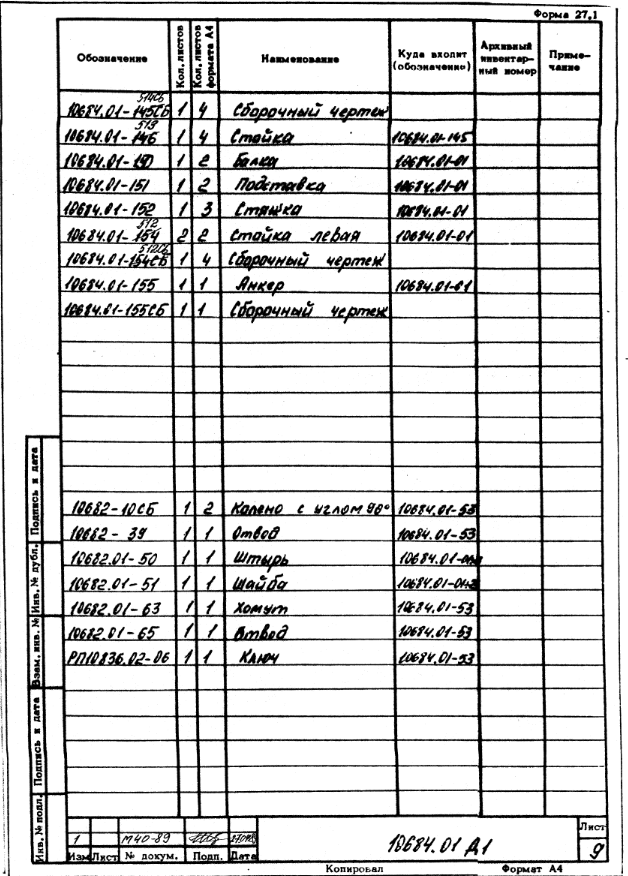 Форма 27.1
Обозначение Кол. листов Кол. листов формата А4 Наименование Куда входит (обозначение) Архивный инвентарный номер Примечание
514СБ
10684.01-145СБ 1 4 Сборочный чертеж
513
10684.01-146 1 4 Стойка 10684.01-145
10684.01-150 1 2 Балка 10684.01-01
10684.01-151 1 2 Подставка 10684.01-01
10684.01-152 1 3 Стяжка 10684.01-01
512
10684.01-154 2 2 Стойка левая 10684.01-01
512СБ
10684.01-154СБ 1 4 Сборочный чертеж
10684.01-155 1 1 Анкер 10684.01-01
10684.01-155СБ 1 1 Сборочный чертеж
10682-10СБ 1 2 Колено с углом 90° 10684.01-53
10682-39 1 1 Отвод 10684.01-53
10682.01-50 1 1 Штырь 10684.01-
10682.01-51 1 1 Шайба 10684.01-
10682.01-63 1 1 Хомут 10684.01-53
10682.01-65 1 1 Отвод 10684.01-53
РП10836.02-06 1 1 Ключ 10684.01-53
Подпись и дата
Инв. № дубл.
Взам. инв. №
Подпись и дата
Инв. № подл.
1 М40-89
Изм Лист № докум. Подп. Дата
10684.01 Д1
Лист
9
Копировал Формат А4